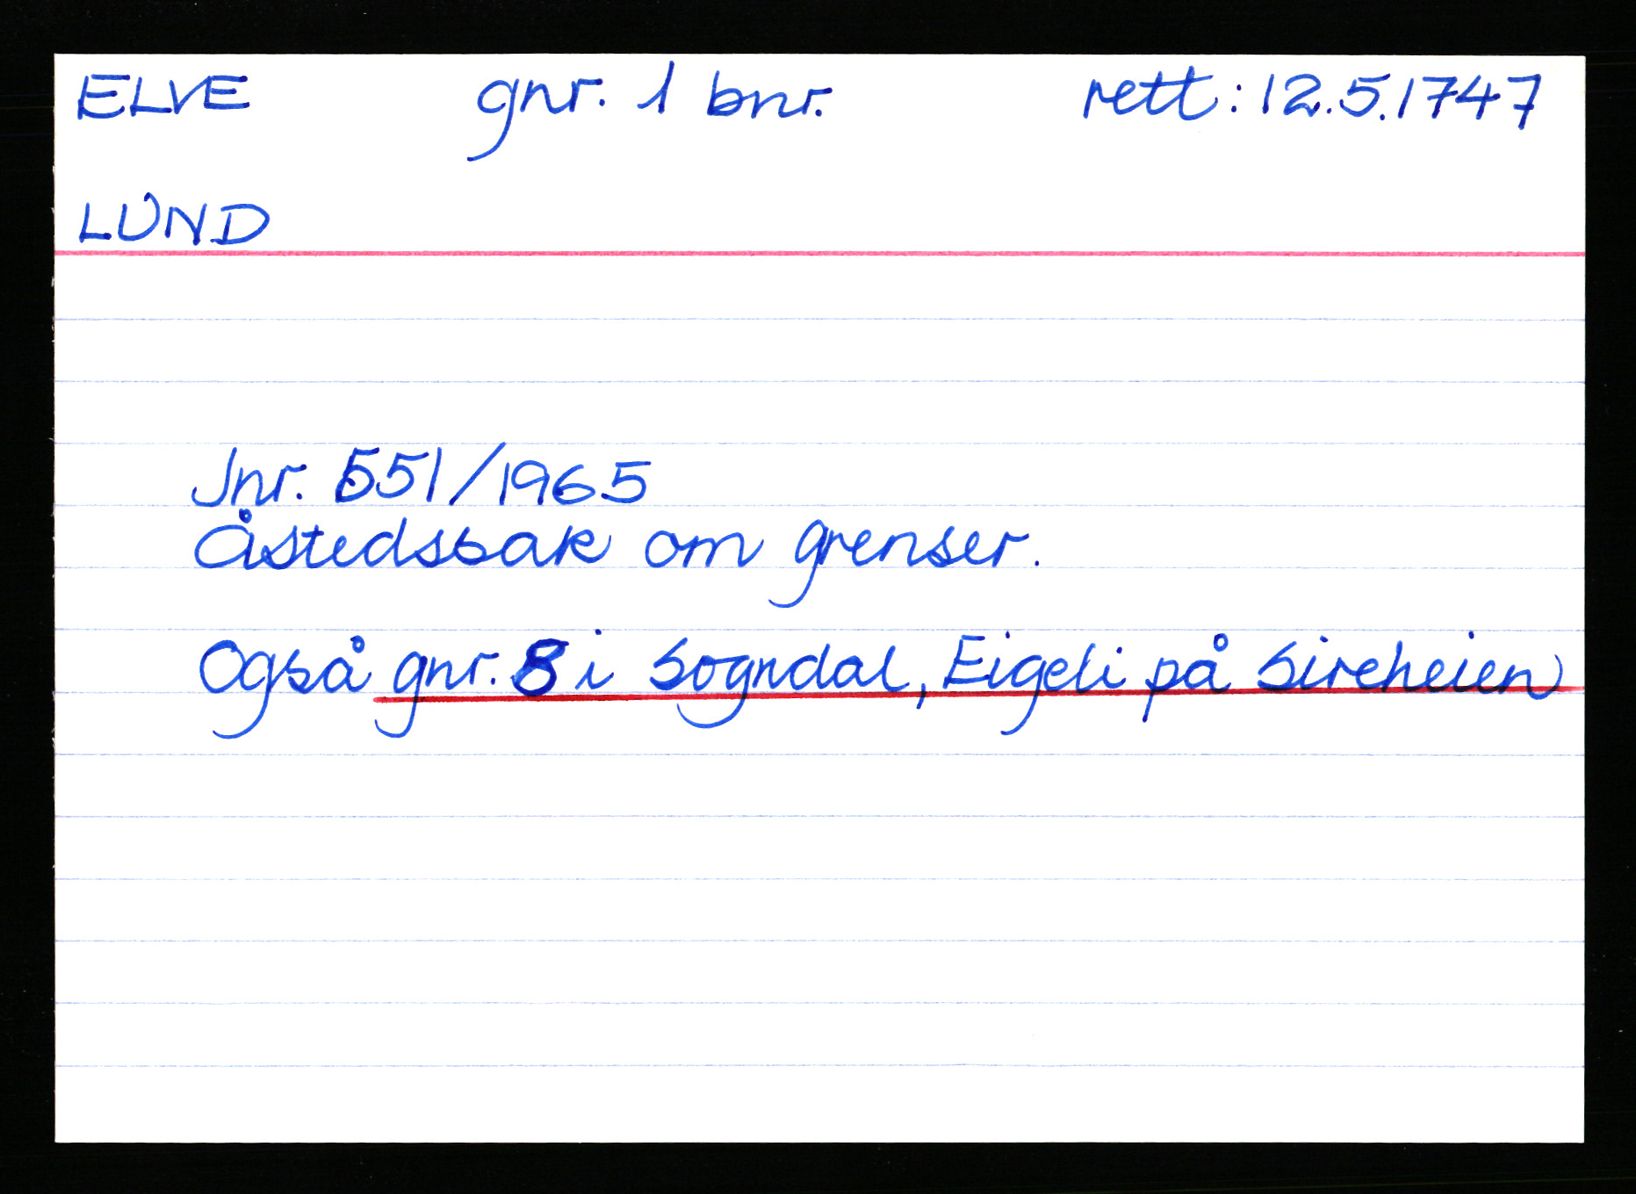 ELVE gnr. 1 bnr. rett: 12.5.1747
LUND
Jnr. 551/1965
Åstedssak om grenser.
Også gnr. 8 i Sogndal, Eigeli på Sireheien